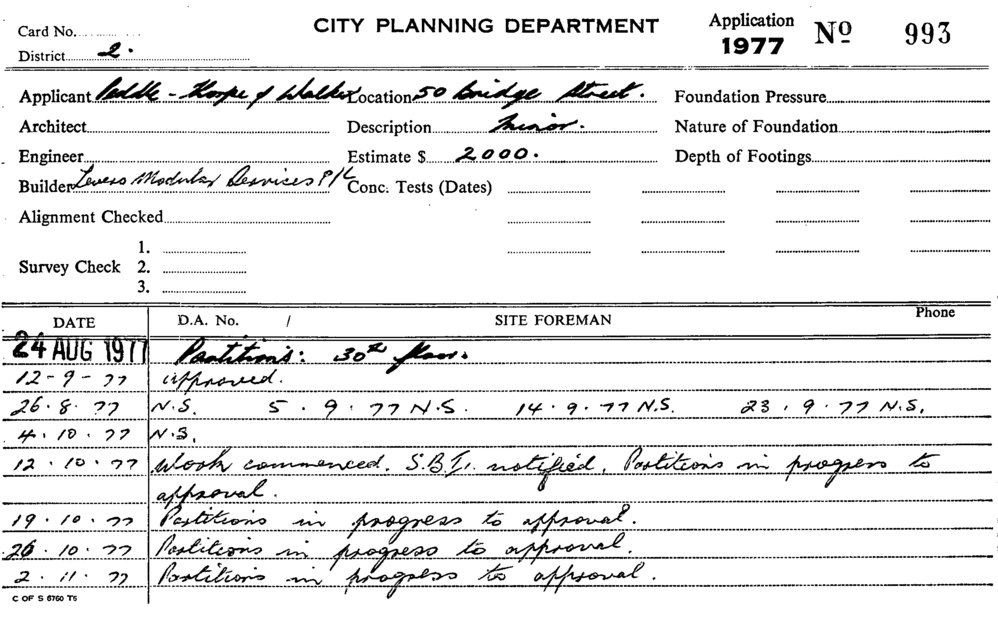 Card No.
CITY PLANNING DEPARTMENT
Application 1977 Nº 993
District 2.
Applicant Peddle - Thorpe & Walker Location 50 Bridge Street. Foundation Pressure
Architect Description Minor. Nature of Foundation
Engineer Estimate $ 2000. Depth of Footings
Builder Levero Modular Services P/L Conc. Tests (Dates)
Alignment Checked
1.
Survey Check 2.
3.
DATE D.A. No. / SITE FOREMAN Phone
24 AUG 1977 Partitions: 30th floor.
12-9-77 approved.
26.8.77 N.S. 5.9.77 N.S. 14.9.77 N.S. 23.9.77 N.S.
4.10.77 N.S.
12.10.77 Work commenced. S.B.I. notified. Partitions in progress to
approval.
19.10.77 Partitions in progress to approval.
26.10.77 Partitions in progress to approval.
2.11.77 Partitions in progress to approval.
C OF S 6760 T5